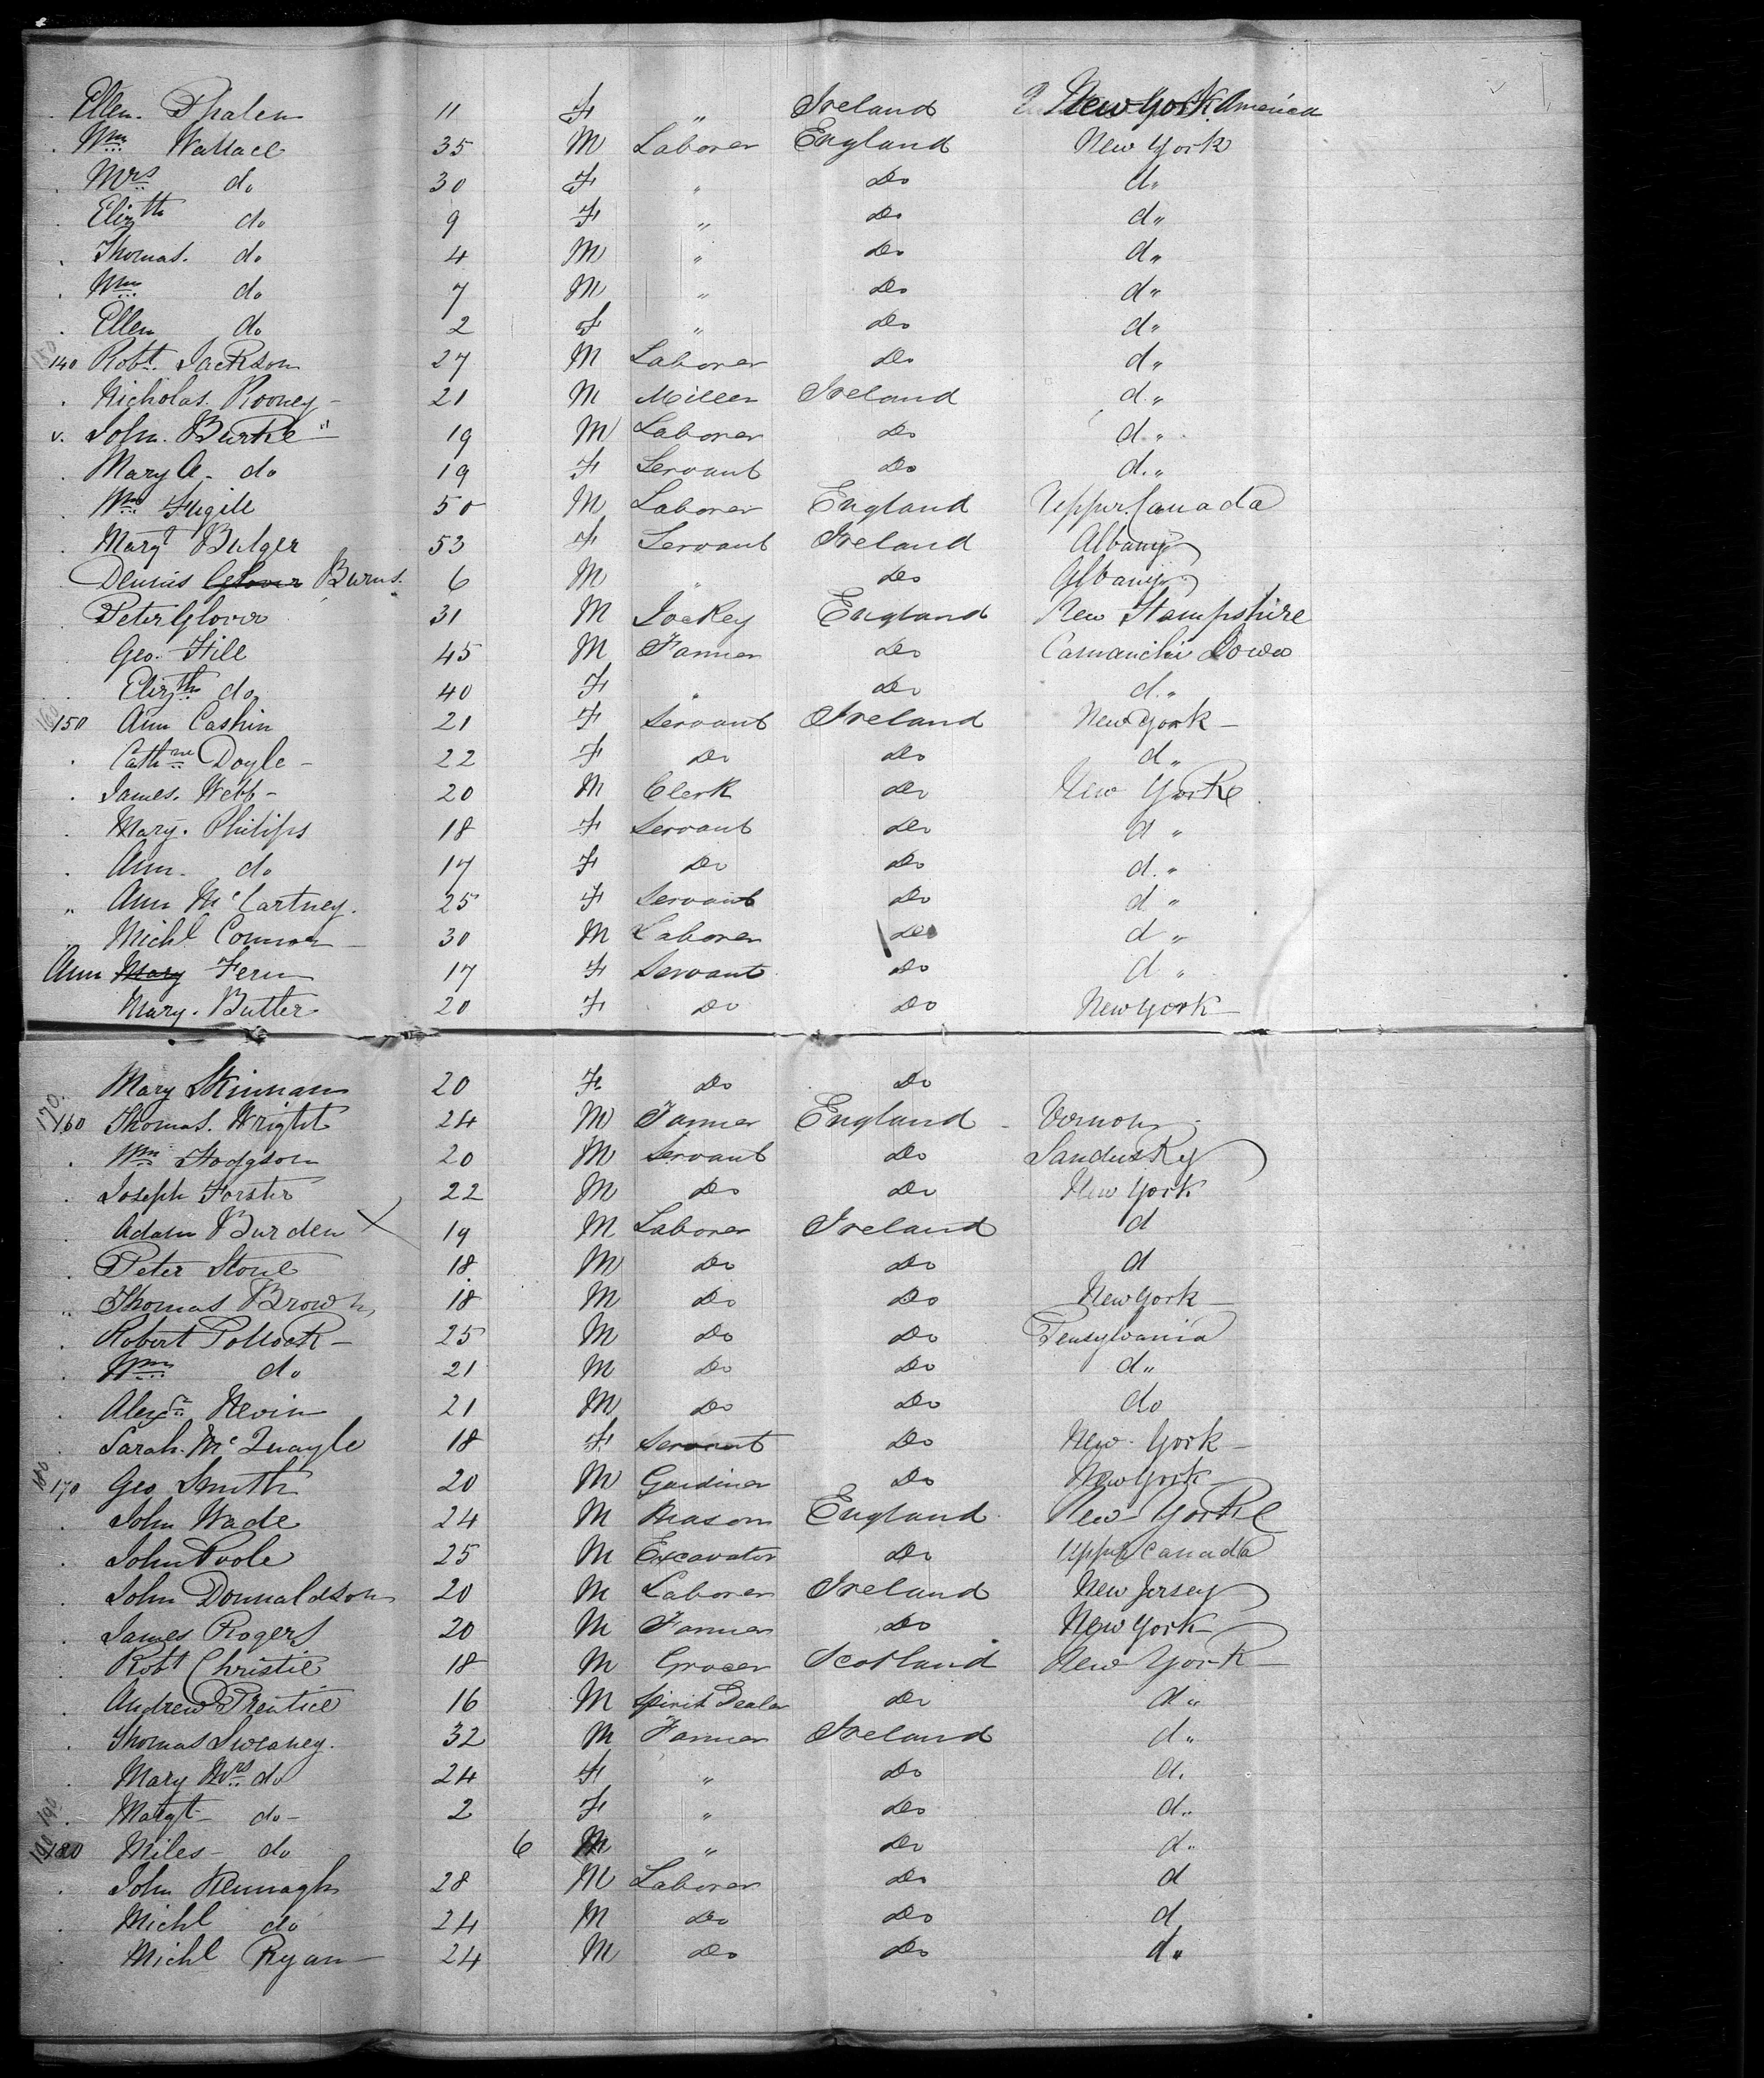 Ellen Phalen 11 F " Ireland New York America
Wm Wallace 35 M Laborer England New York
Mrs do 30 F " Do d"
Elizth do 9 F " Do d"
Thomas. do 4 M " Do d"
Wm do 7 M " Do d"
Ellen do 2 F " Do d"
140 Robt. Jackson 27 M Laborer Do d"
Nicholas Rooney - 21 M Miller Ireland d"
v. John. Burke " 19 M Laborer Do d"
Mary A. do 19 F Servant Do d"
Wm Fugill 50 M Laborer England Upper Canada
Margt Bulger 53 F Servant Ireland Albany
Dennis Glover Burns. 6 M " Do Albany
Peter Glover 31 M Jockey England New Hampshire
Geo. Hill 45 M Farmer Do Camanchi Iowa
Elizth do 40 F " Do d"
160 150 Ann Cashin 21 F Servant Ireland New York -
Cathne Doyle - 22 F Do Do d"
James. Webb - 20 M Clerk Do New York
Mary. Philips 18 F Servant Do d"
Ann. do 17 F Do Do d"
" Ann McCartney. 25 F Servant Do d"
Michl Connor 30 M Laborer Do d"
Ann Mary Fern 17 F Servant Do d"
Mary. Butler 20 F Do Do New York
Mary Skinnan 20 F Do Do
170. 160 Thomas. Wright 24 M Farmer England - Vernon
Wm Hodgson 20 M Servant Do Sandusky
Joseph Forster 22 M Do Do New York
Adam Burden X 19 M Laborer Ireland d
Peter Stone 18 M Do Do d
Thomas Brown 18 M Do Do New York
Robert Pollock - 25 M Do Do Pensylvania
Wm do 21 M Do Do d"
Alexr Nevin 21 M Do Do do
Sarah. McQuayle 18 F Servant Do New York
180 170 Geo Smith 20 M Gardiner Do New York
John Wade 24 M Mason England New York
John Poole 25 M Excavator Do Upper Canada
John Donnaldson 20 M Laborer Ireland New Jersey
James Rogers 20 M Farmer Do New York
Robt Christie 18 M Grocer Scotland New York
Andrew Prentice 16 M Spirit Dealer Do d"
Thomas Sweaney. 32 M Farmer Ireland d"
Mary Mrs do 24 F " Do d.
Margt do - 2 F " Do d"
190 180 Miles - do 6 M " Do d"
John Kennagh 28 M Laborer Do d
Michl do 24 M Do Do d
Michl Ryan 24 M Do Do d"